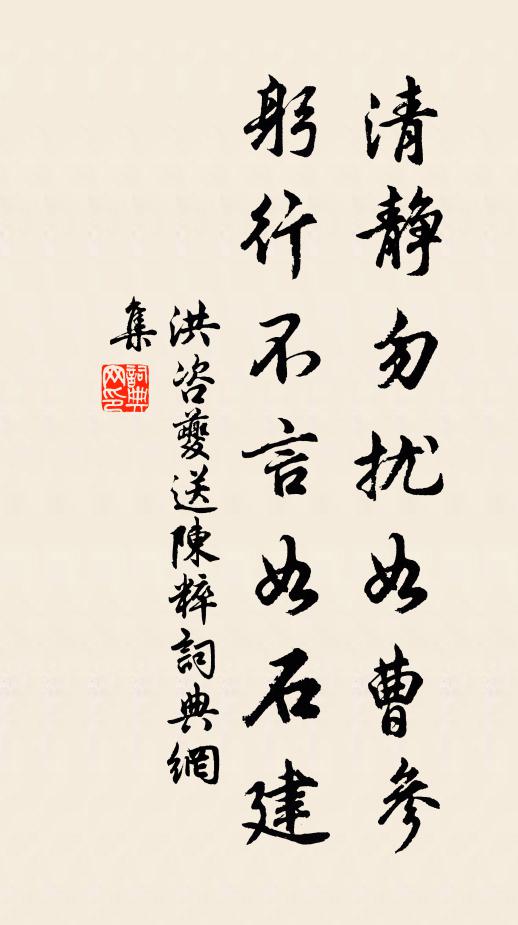 清静勿扰如曹参
躬行不言如石建
洪咨夔送陳粹詞典網
集
詞典
网印